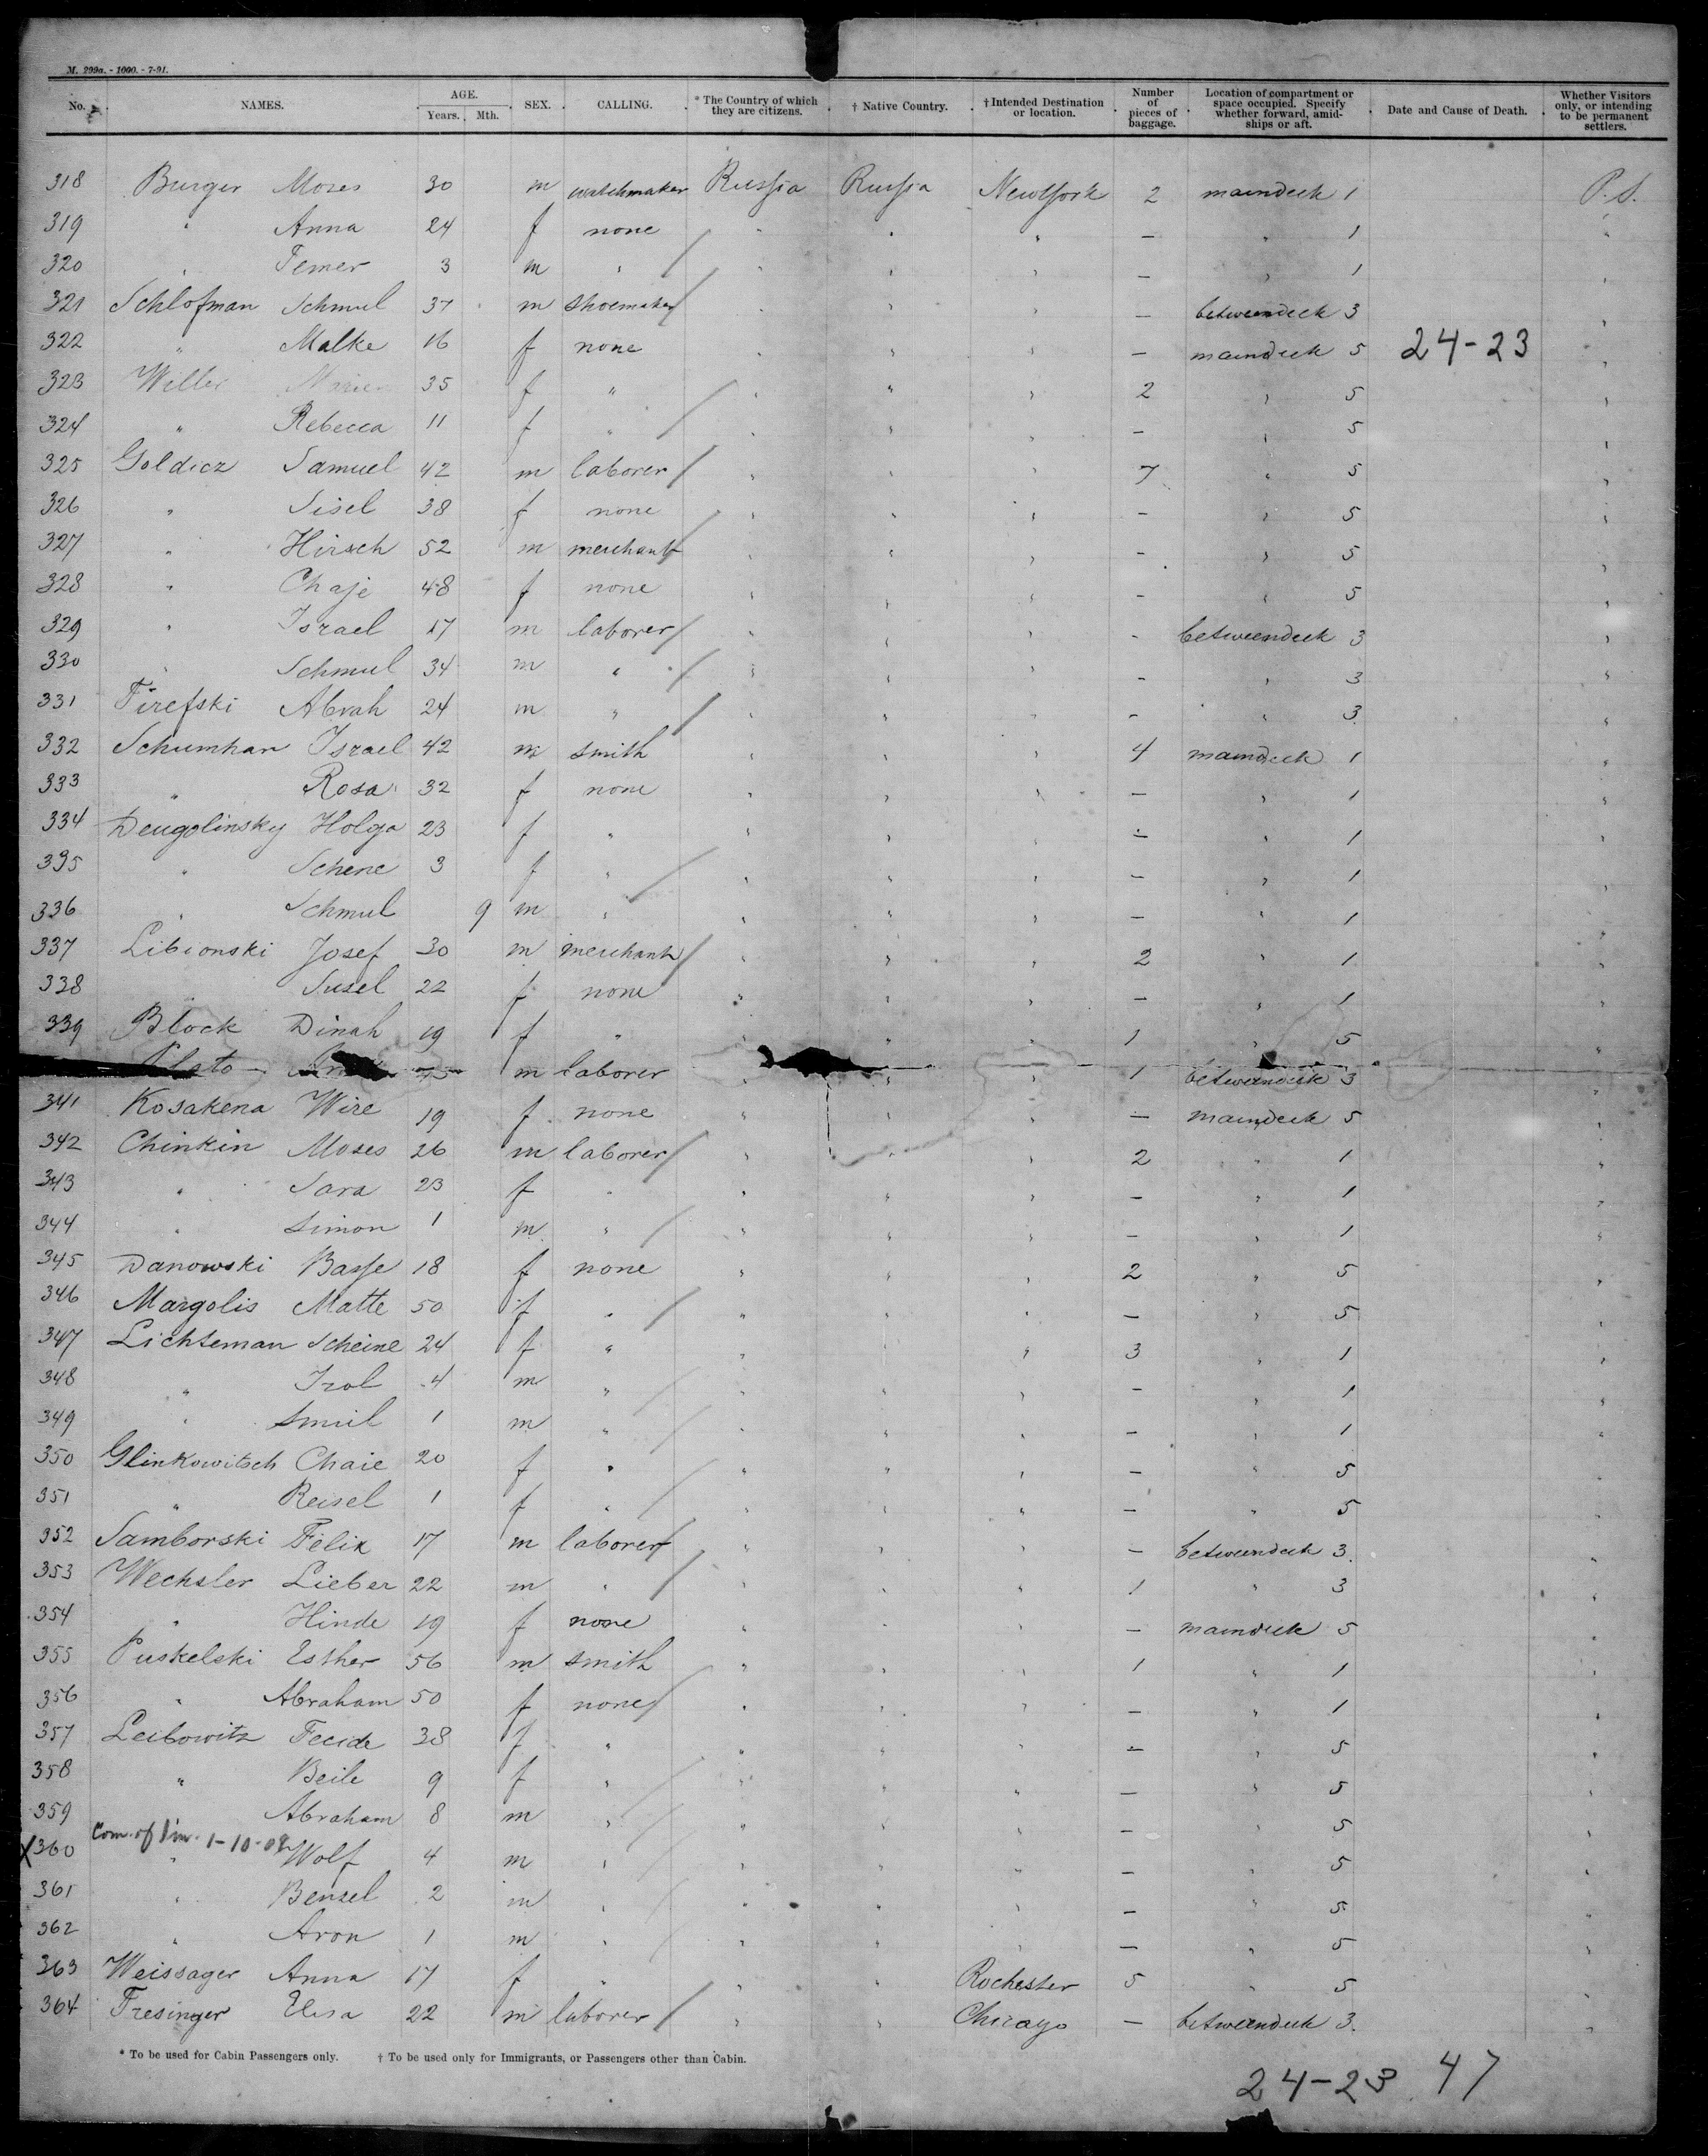 M. 299a. - 1000. - 7-91.
No. NAMES. AGE. Years. Mth. SEX. CALLING. * The Country of which they are citizens. † Native Country. † Intended Destination or location. Number of pieces of baggage. Location of compartment or space occupied. Specify whether forward, amidships or aft. Date and Cause of Death. Whether Visitors only, or intending to be permanent settlers.
318 Burger Moses 30 m watchmaker Russia Russia New York 2 maindeck 1 P.S.
319 " Anna 24 f none " " " — " 1 "
320 " Femer 3 m " " " " — " 1 "
321 Schlofman Schmul 37 m shoemaker " " " — betweendeck 3 "
322 " Malke 16 f none " " " — maindeck 5 24-23 "
323 Willer Marie 35 f " " " " 2 " 5 "
324 " Rebecca 11 f " " " " — " 5 "
325 Goldicz Samuel 42 m laborer " " " 7 " 5 "
326 " Sisel 38 f none " " " — " 5 "
327 " Hirsch 52 m merchant " " " — " 5 "
328 " Chaje 48 f none " " " — " 5 "
329 " Israel 17 m laborer " " " — betweendeck 3 "
330 " Schmul 34 m " " " " — " 3 "
331 Firefski Abrah 24 m " " " " — " 3 "
332 Schumhar Israel 42 m smith " " " 4 maindeck 1 "
333 " Rosa 32 f none " " " — " 1 "
334 Deugolinsky Holga 23 f " " " " — " 1 "
335 " Schene 3 f " " " " — " 1 "
336 " Schmul 9 m " " " " — " 1 "
337 Libionski Josef 30 m merchant " " " 2 " 1 "
338 " Susel 22 f none " " " — " 1 "
339 Block Dinah 19 f " " " " 1 " 5 "
m laborer " " " 1 betweendeck 3 "
341 Kosakena Wire 19 f none " " " — maindeck 5 "
342 Chinkin Moses 26 m laborer " " " 2 " 1 "
343 " Sara 23 f " " " " — " 1 "
344 " Simon 1 m " " " " — " 1 "
345 Danowski Basse 18 f none " " " 2 " 5 "
346 Margolis Matte 50 f " " " " — " 5 "
347 Lichteman Scheine 24 f " " " " 3 " 1 "
348 " Izol 4 m " " " " — " 1 "
349 " Smul 1 m " " " " — " 1 "
350 Glinkowitsch Chaie 20 f " " " " — " 5 "
351 " Reisel 1 f " " " " — " 5 "
352 Samborski Felix 17 m laborer " " " — betweendeck 3 "
353 Wechsler Lieber 22 m " " " " 1 " 3 "
354 " Hinde 19 f none " " " — maindeck 5 "
355 Puskelski Esther 56 m smith " " " 1 " 1 "
356 " Abraham 50 f none " " " — " 1 "
357 Leibowitz Feude 38 f " " " " — " 5 "
358 " Beile 9 f " " " " — " 5 "
359 Abraham 8 m " " " " — " 5 "
Com. of Im. 1-10-08
X 360 " Wolf 4 m " " " " — " 5 "
361 " Bensel 2 m " " " " — " 5 "
362 " Aron 1 m " " " " — " 5 "
363 Weissager Anna 17 f " " " Rochester 5 " 5 "
364 Fresinger Elisa 22 m laborer " " Chicago — betweendeck 3 "
* To be used for Cabin Passengers only. † To be used only for Immigrants, or Passengers other than Cabin.
24-23 47